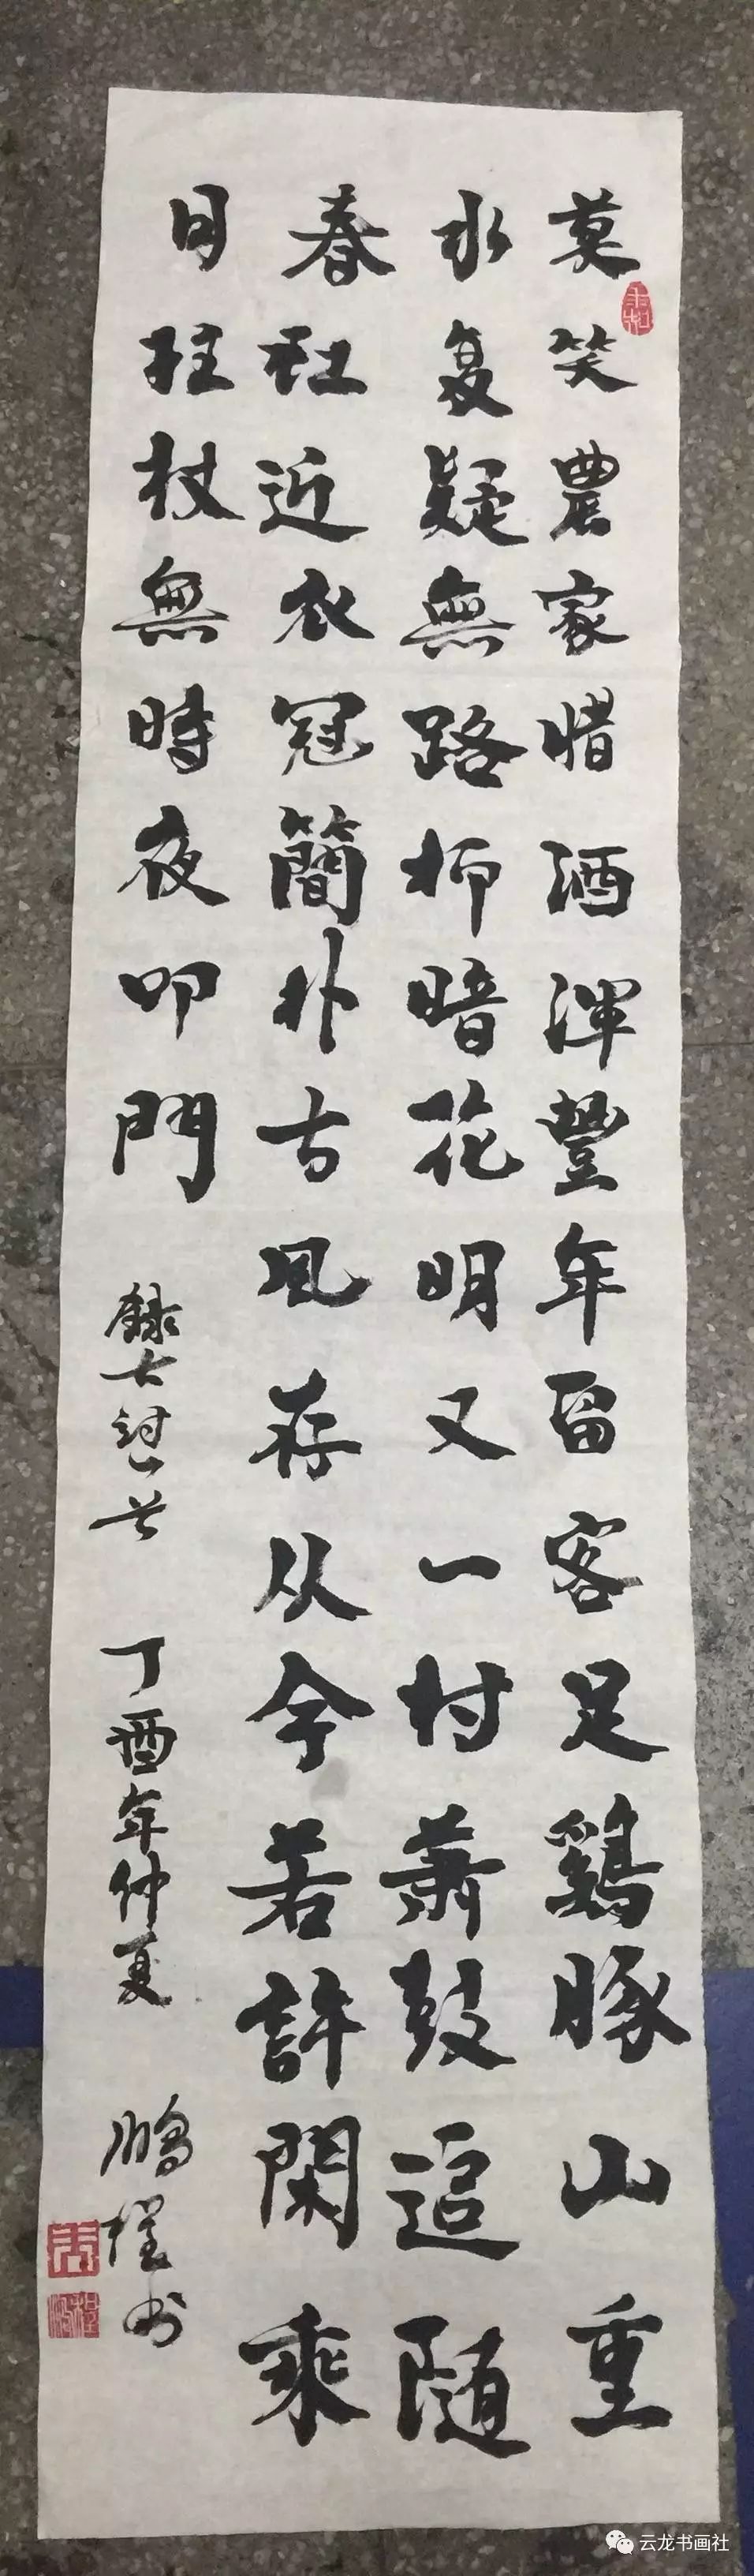 莫笑農家腊酒渾豐年留客足鷄豚山重
水复疑無路柳暗花明又一村萧鼓追随
春社近衣冠簡朴古風存从今若許閑乘
月拄杖無時夜叩門
錄古詩一首 丁酉年仲夏 鵬程书
云龙书画社